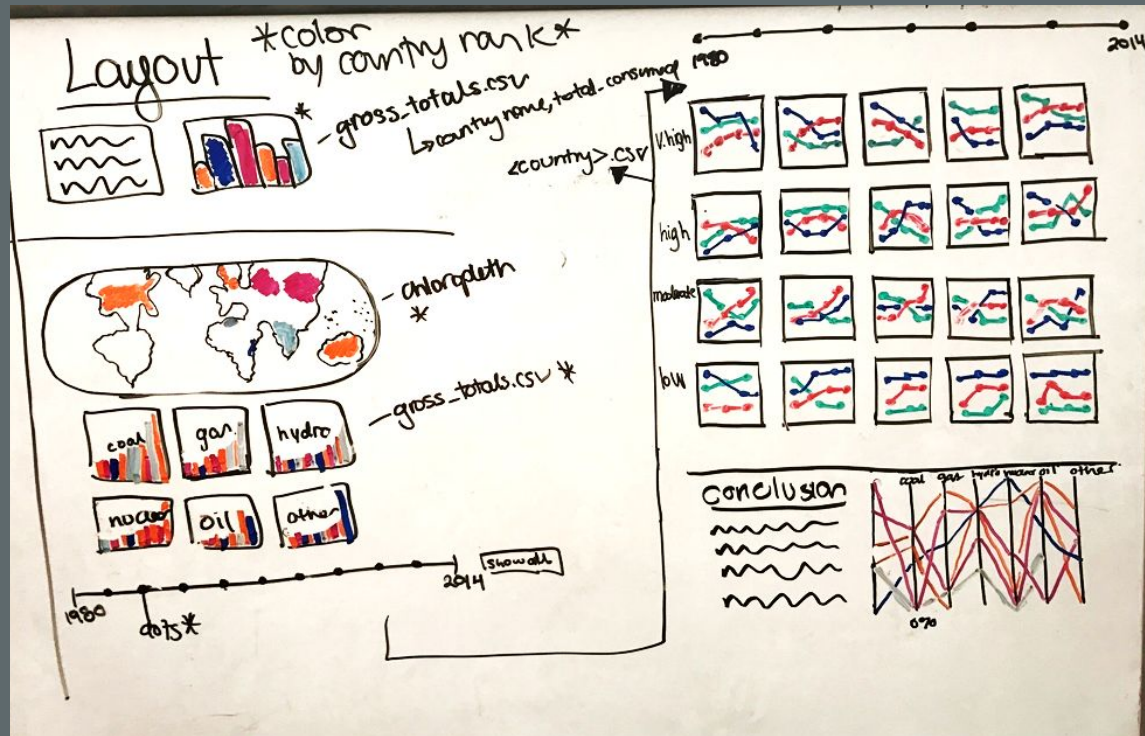 Layout
*color
by country rank*
*
gross_totals.csv
↳ country name, total_consumed
chloropleth
*
gross_totals.csv *
coal
gas
hydro
nuclear
oil
other
1980
2014
show all
dots*
<country>.csv
1980
2014
v.high
high
moderate
low
conclusion
coal gas hydro nuclear oil other
0%